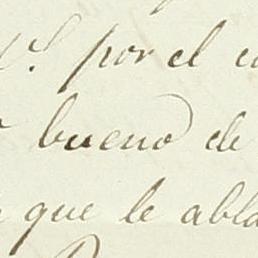 por el
bueno de
que le abla